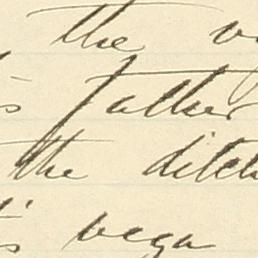 the
's father
the ditch
's vega